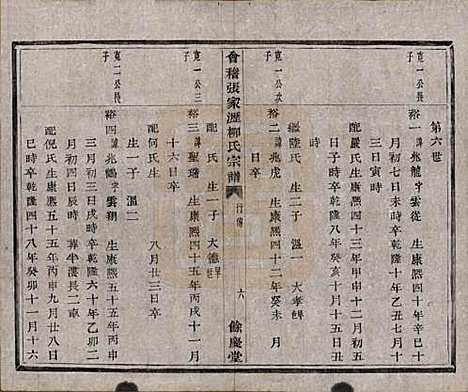 第六世
寬一公長子
裕一 諱兆龍字雲從 生康熙四十年辛巳十
月初七日未時卒乾隆十年乙丑七月十
三日寅時
配嚴氏生康熙四十三年甲申十二月初五
日 時卒乾隆八年癸亥十月三日
繼陸氏 生一子 溫一 大孝
寬一公次子
裕二 諱兆虎 生康熙四十二年癸未 月
日卒
會稽張家瀝柳氏宗譜 行傳 六 餘慶堂
寬一公三子
裕三 諱聖瑞 生康熙四十五年丙戌十一月
配 氏 生一子 大德
十六日卒
配何氏生 八月廿三日卒
生一子 溫二
寬二公長子
裕四 諱兆鶴字雲翔 生康熙五十五年丙申
三月初三日戌時卒乾隆六十年乙卯二
月初四日辰時 葬半漊長二車
配倪氏生康熙五十五年丙申九月廿八日
巳時卒乾隆四十八年癸卯十一月十六